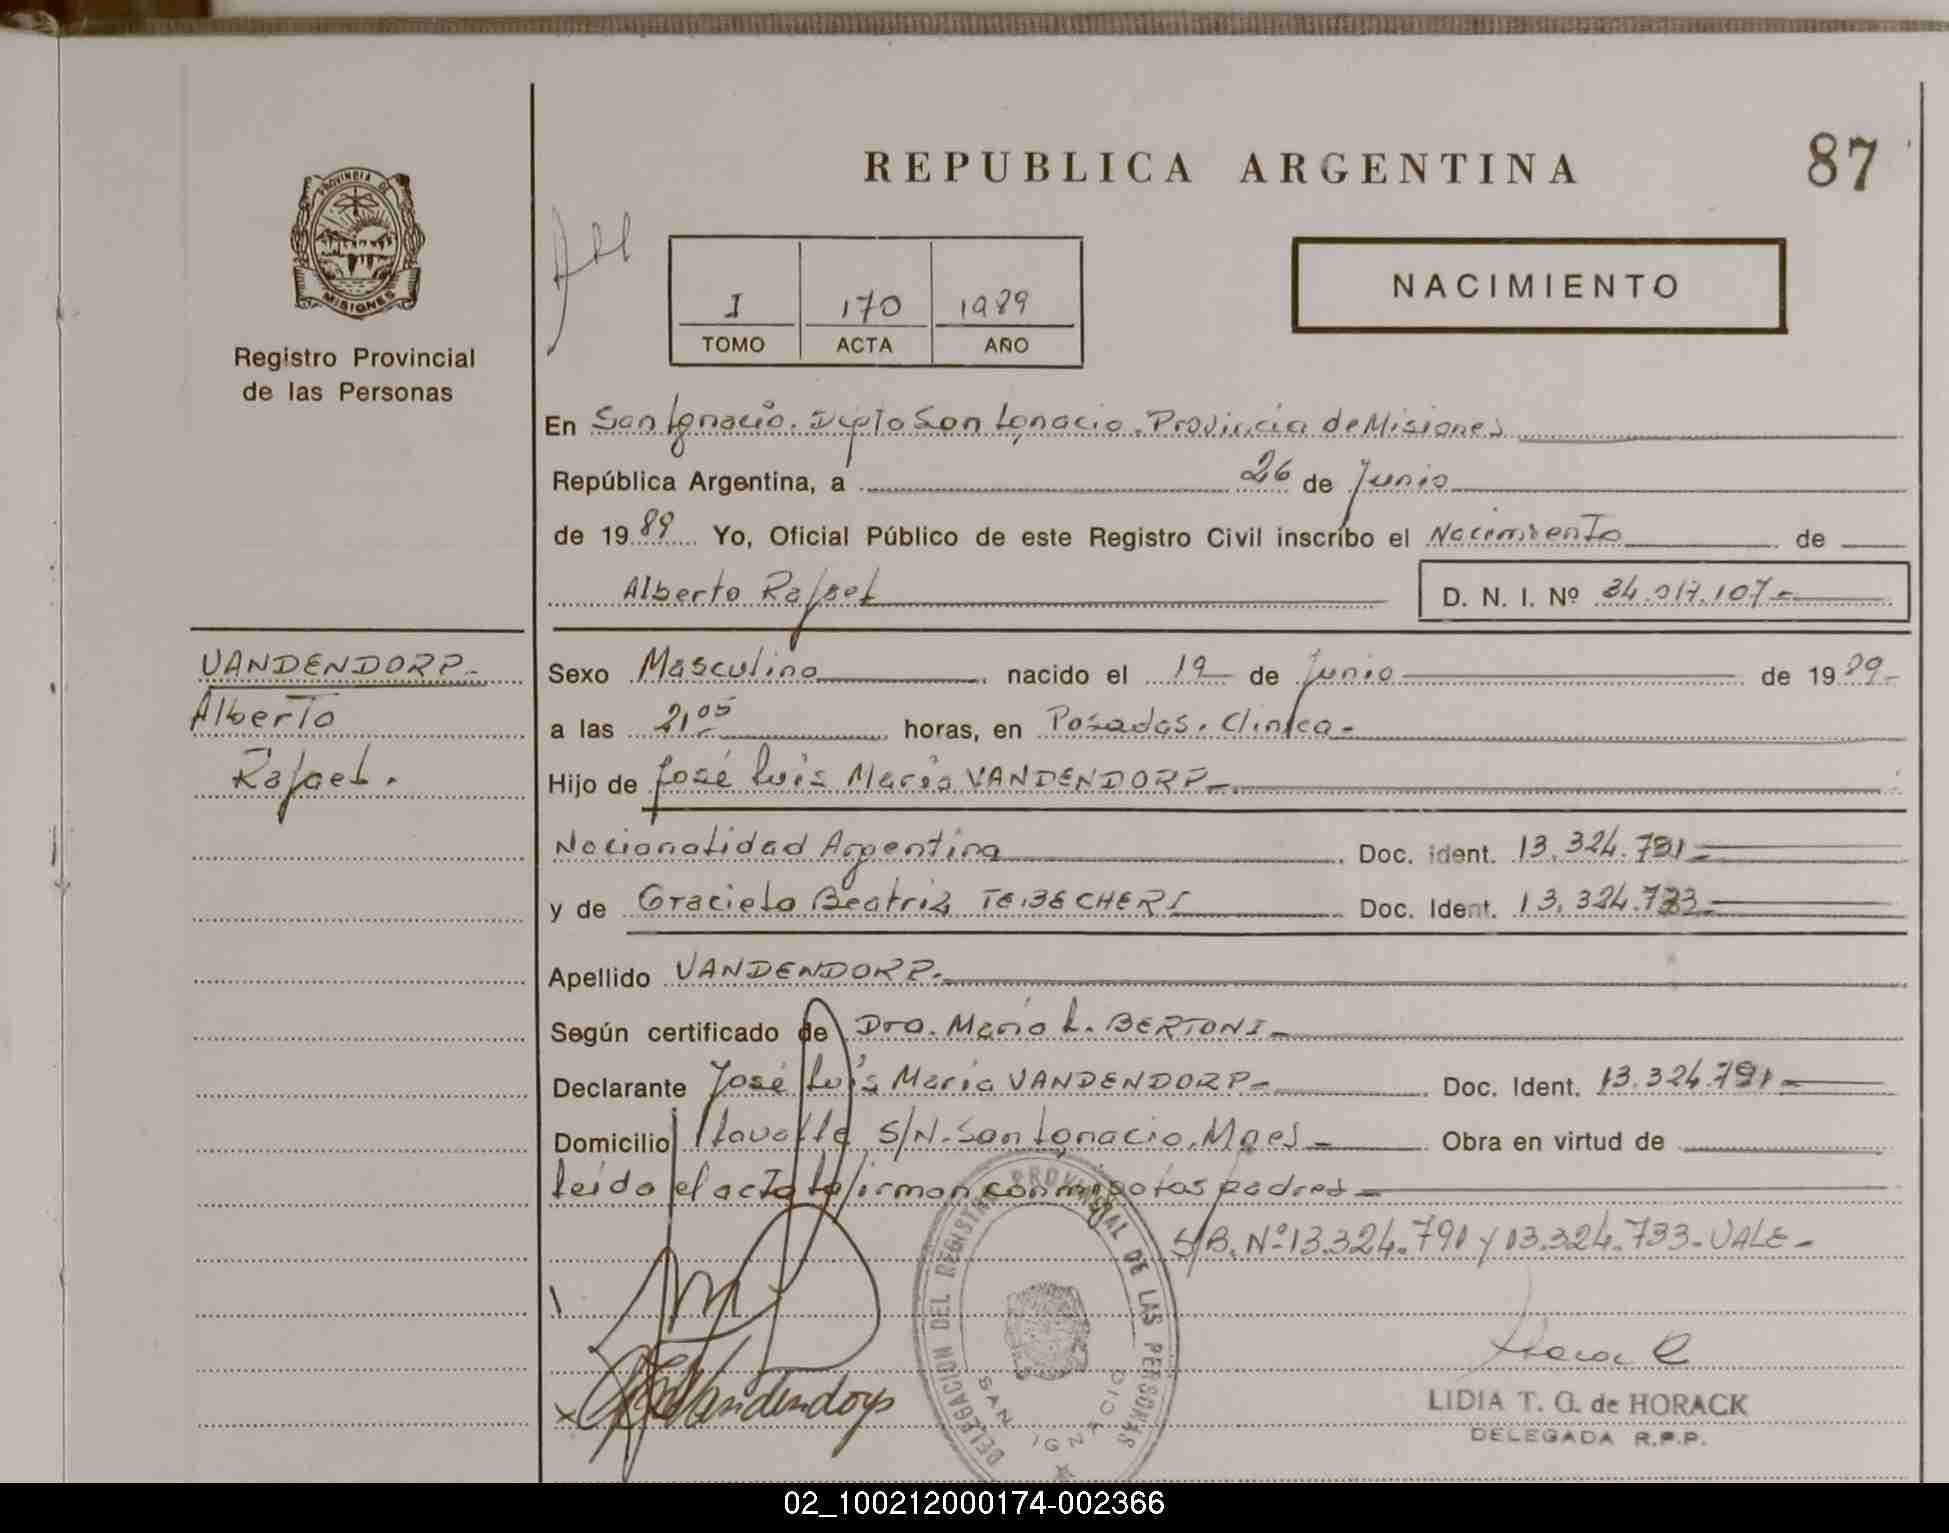 REPUBLICA ARGENTINA
87
PROVINCIA DE
MISIONES
Registro Provincial
de las Personas
I 170 1989
TOMO ACTA AÑO
NACIMIENTO
En San Ignacio. Dpto San Ignacio. Provincia de Misiones
República Argentina, a 26 de Junio
de 1989 Yo, Oficial Público de este Registro Civil inscribo el Nacimiento de
Alberto Rafael D. N. I. Nº 34.017.107-
VANDENDORP-
Alberto
Rafael.
Sexo Masculino nacido el 19 de Junio de 1989-
a las 21,05 horas, en Posadas. Clinica-
Hijo de José Luis María VANDENDORP-
Nacionalidad Argentina Doc. ident. 13.324.791-
y de Graciela Beatriz TEIBECHERI Doc. Ident. 13.324.733-
Apellido VANDENDORP.
Según certificado de Dra. María L. BERTONI-
Declarante José Luis María VANDENDORP- Doc. Ident. 13.324.791-
Domicilio Lavalle S/N. San Ignacio, Mnes- Obra en virtud de
leída el acta la firman conmigo los padres-
S/B. Nº 13.324.791 y 13.324.733- VALE-
Vandendorp
DELEGACION DEL REGISTRO PROVINCIAL DE LAS PERSONAS
SAN IGNACIO
LIDIA T. G. de HORACK
DELEGADA R.P.P.
02_100212000174-002366